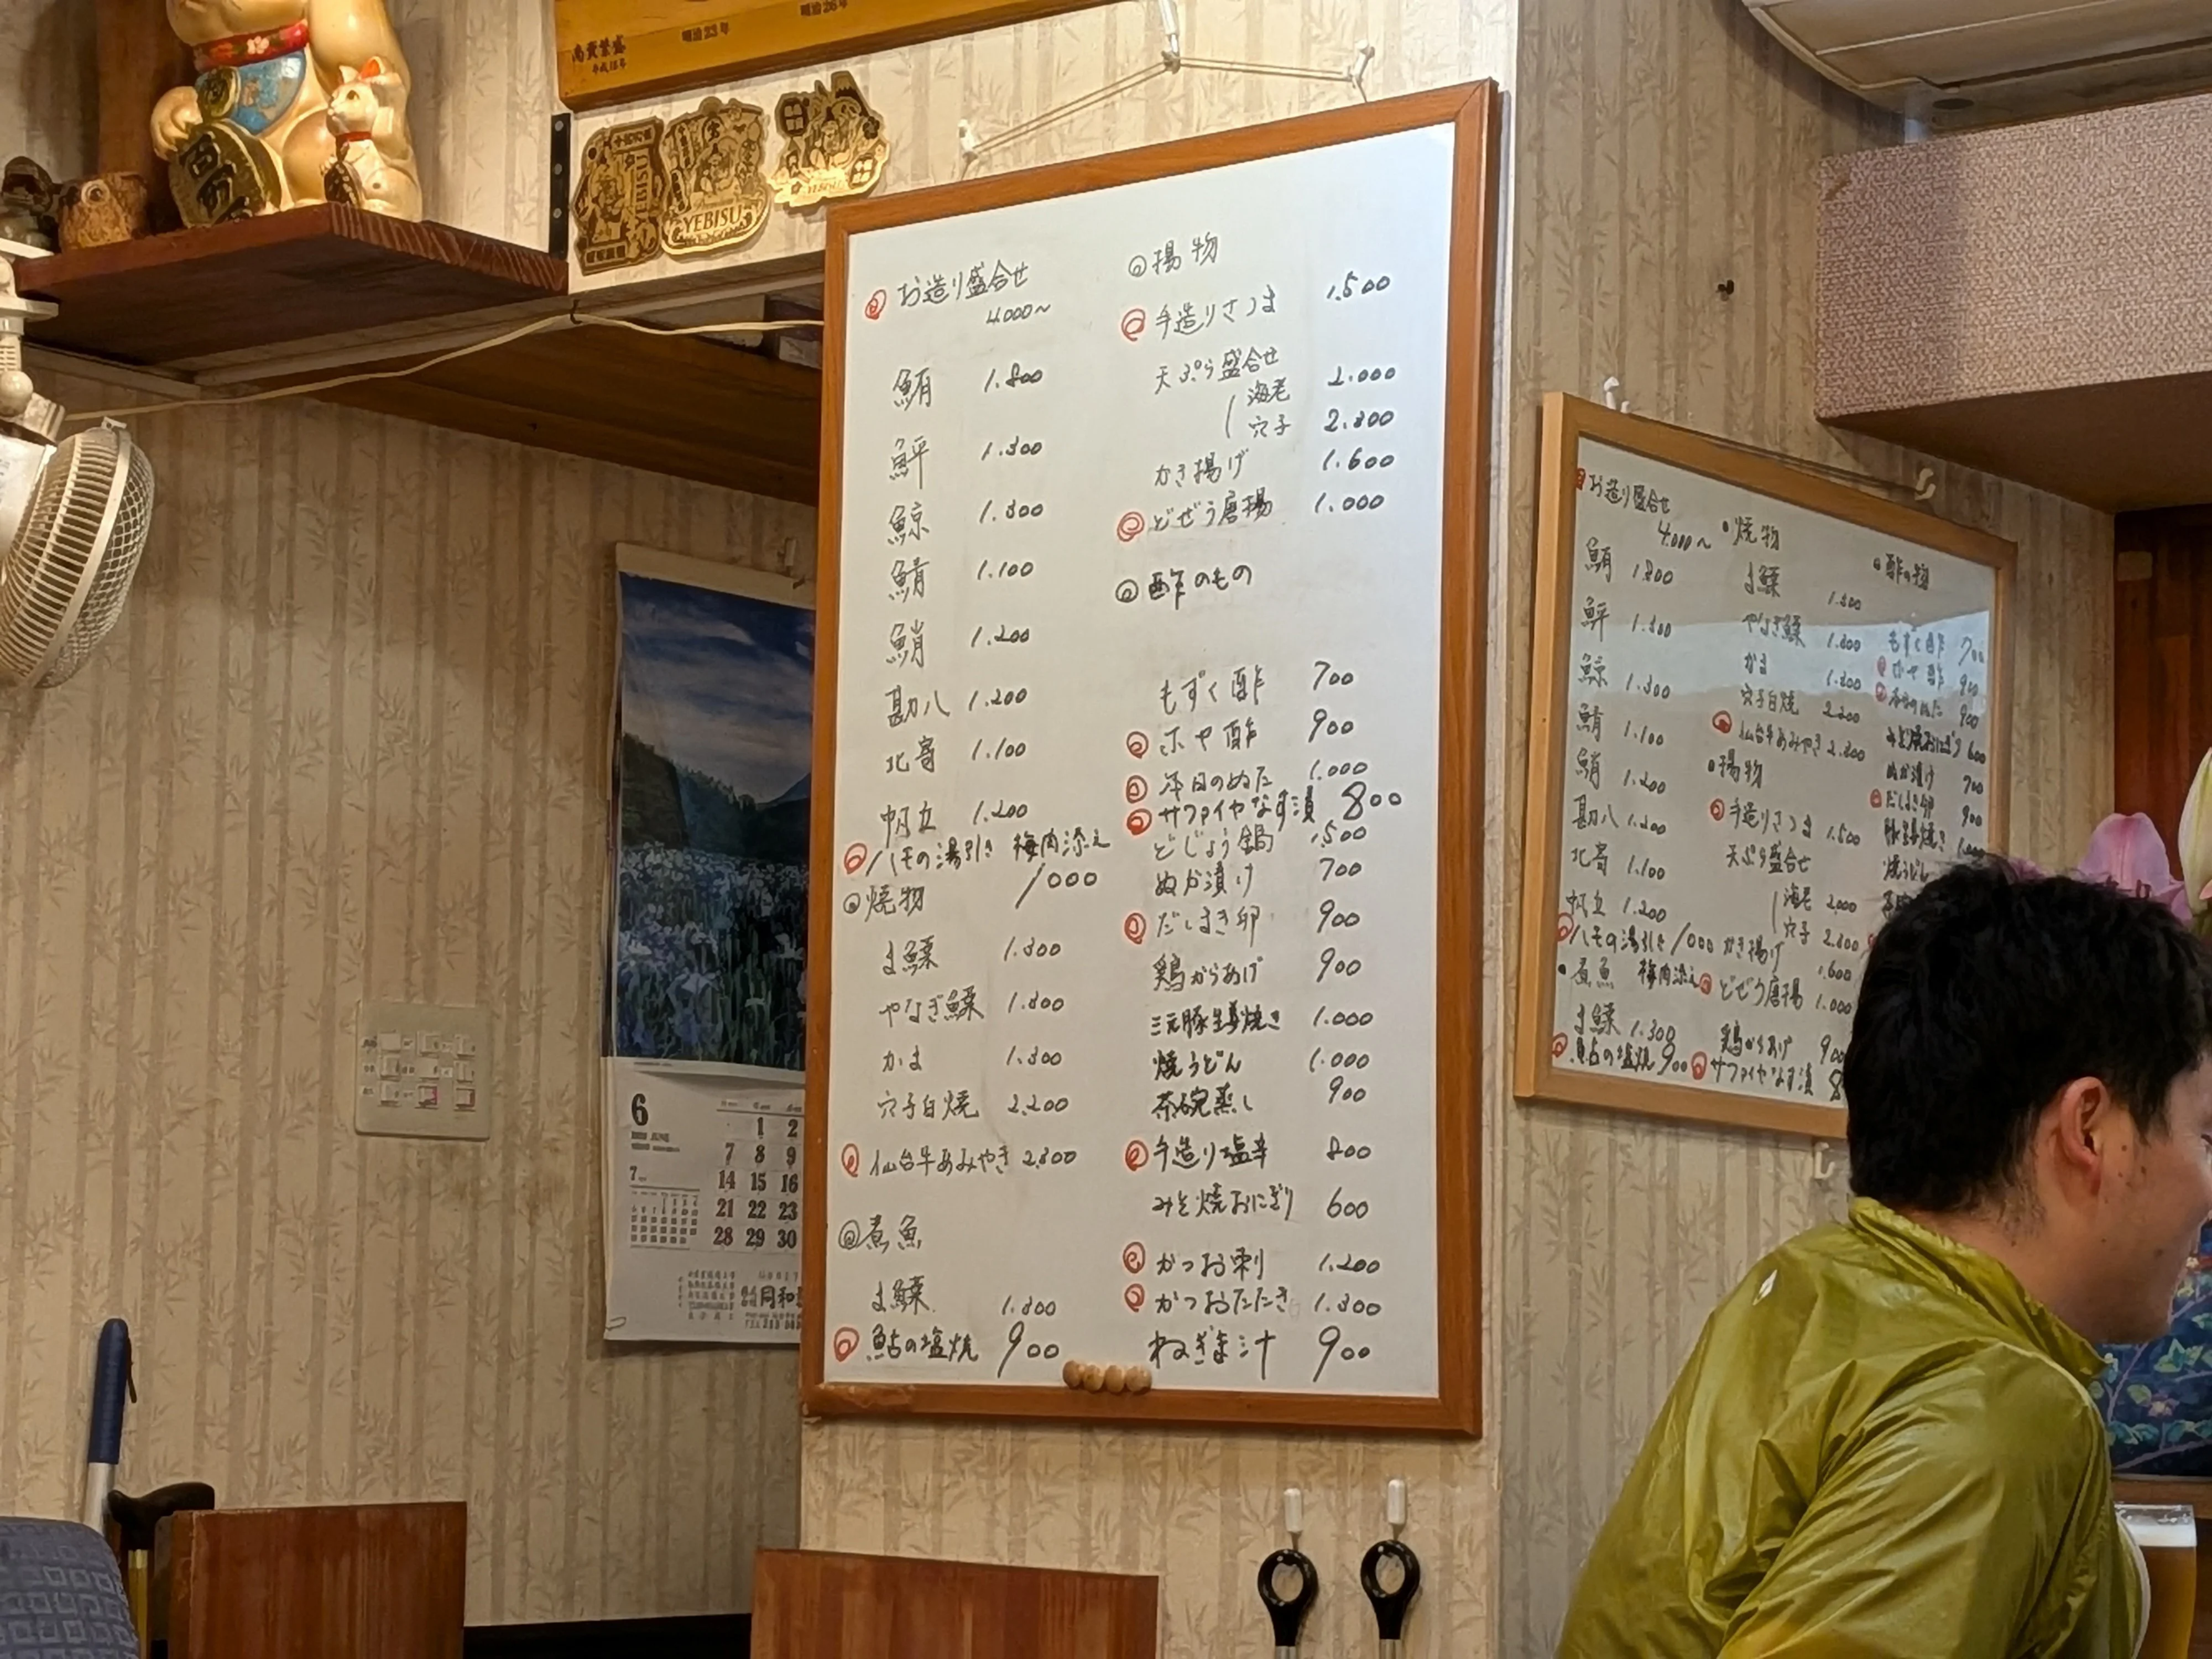 商売繁盛
平成18年
明治23年
明治26年
YEBISU
YEBISU
YEBISU
お造り盛合せ
4.000~
鮪 1.800
鮃 1.300
鯨 1.300
鯖 1.100
鮹 1.200
勘八 1.200
北寄 1.100
帆立 1.200
ハモの湯引き 梅肉添え
1000
焼物
ま鰈 1.300
やなぎ鰈 1.300
かま 1.300
穴子白焼 2.200
仙台牛あみやき 2.300
煮魚
ま鰈 1.300
鮎の塩焼 900
揚物
手造りさつま 1.500
天ぷら盛合せ
海老 2.000
穴子 2.300
かき揚げ 1.600
どぜう唐揚 1.000
酢のもの
もずく酢 700
ホヤ酢 900
本日のぬた 1.000
サファイヤなす漬 800
どじょう鍋 1.500
ぬか漬け 700
だしまき卵 900
鶏からあげ 900
三元豚生姜焼き 1.000
焼うどん 1.000
茶碗蒸し 900
手造り塩辛 800
みそ焼おにぎり 600
かつお刺 1.200
かつおたたき 1.300
ねぎま汁 900
お造り盛合せ
4.000~
鮪 1.800
鮃 1.300
鯨 1.300
鯖 1.100
鮹 1.200
勘八 1.200
北寄 1.100
帆立 1.200
ハモの湯引き 1000
梅肉添え
煮魚
ま鰈 1.300
鮎の塩焼 900
焼物
ま鰈 1.300
やなぎ鰈 1.300
かま 1.300
穴子白焼 2.200
仙台牛あみやき 2.300
揚物
手造りさつま 1.500
天ぷら盛合せ
海老 2.000
穴子 2.300
かき揚げ 1.600
どぜう唐揚 1.000
鶏からあげ 900
サファイヤなす漬 8
酢の物
もずく酢 700
ホヤ酢 900
本日のぬた 900
みそ焼おにぎり 600
ぬか漬け 700
だしまき卵 900
豚生姜焼き
焼うどん
6
JUNE
1 2
7 8 9
14 15 16
21 22 23
28 29 30
7